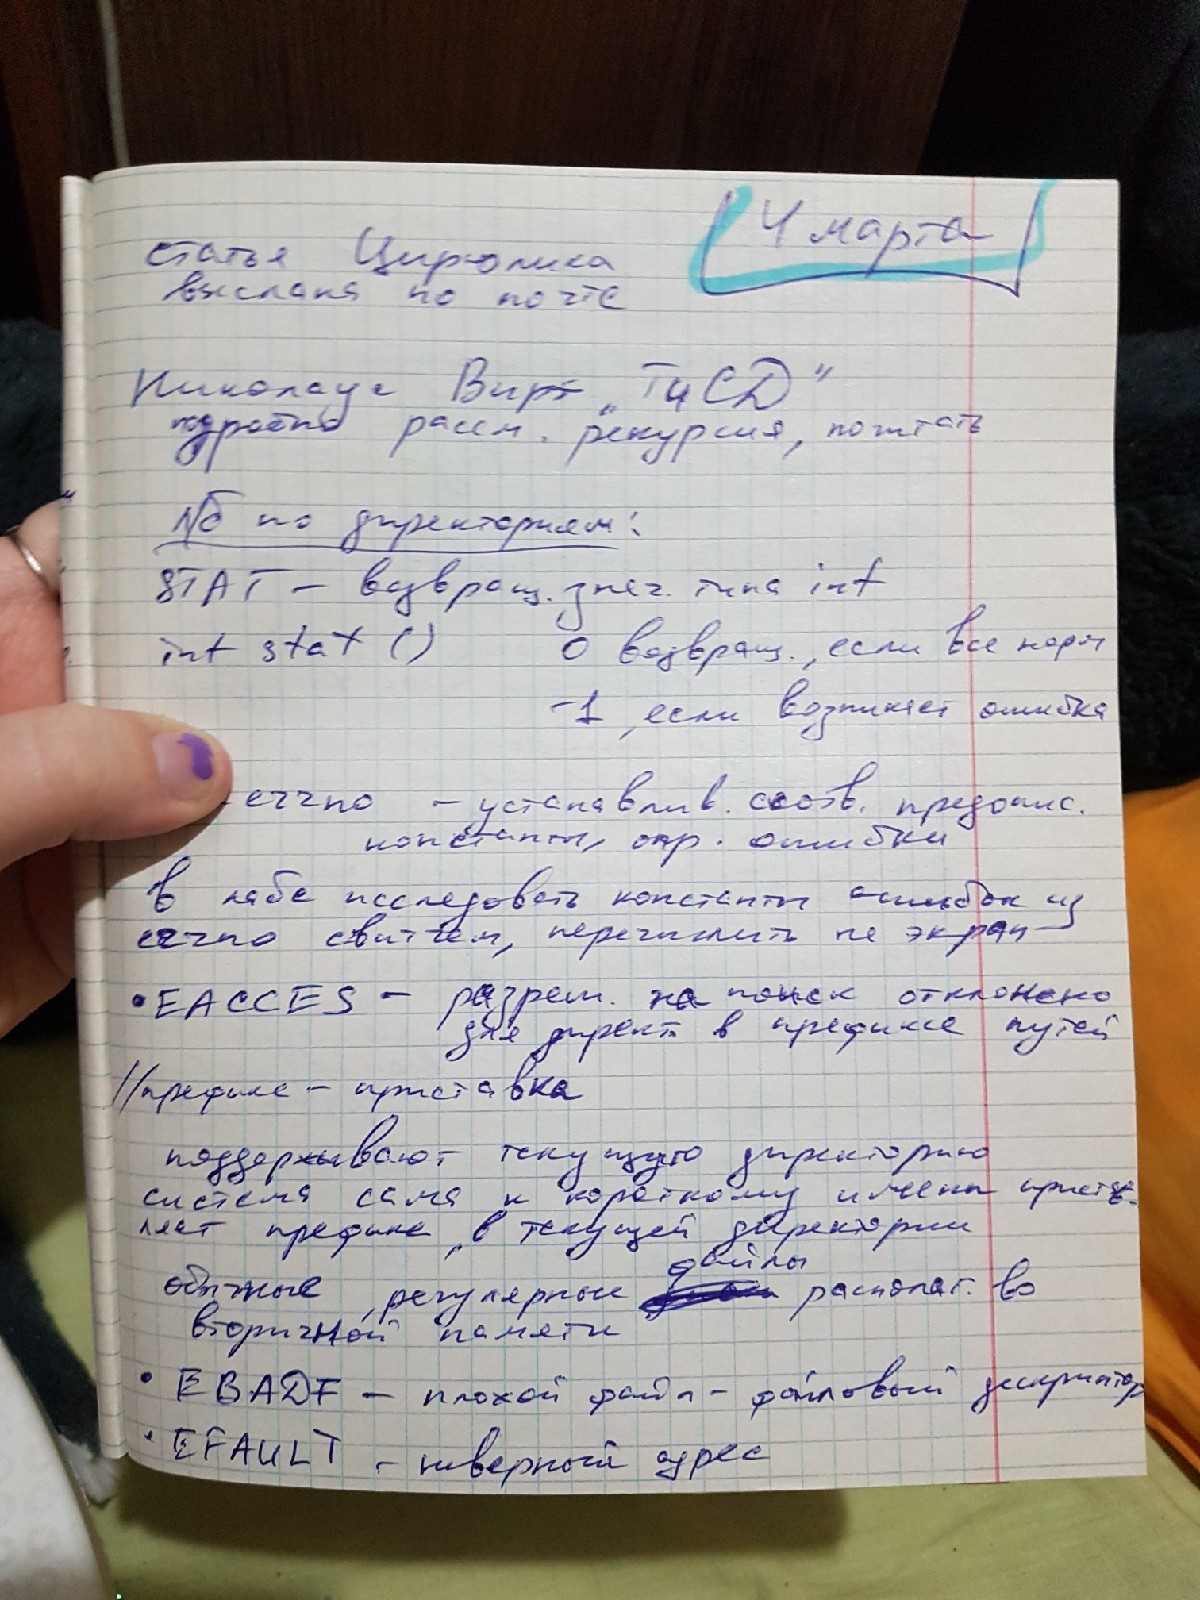 4 марта
статья Цирюлика
выслана по почте
Николаус Вирт „ТиСД"
подробно рассм. рекурсия, почитать
№5 по директориям:
STAT – возвращ. знач. типа int
int stat () 0 возвращ., если все норм
-1, если возникает ошибка
errno – устанавлив. соотв. предопис.
константы, опр. ошибки
в лабе исследовать константы ошибок из
errno свитчем, перечислить на экран
• EACCES – разреш. на поиск отклонено
для директ. в префиксе путей
//префикс – приставка
поддерживают текущую директорию
система сама к короткому имени пристав-
ляет префикс, в текущей директории
обычные, регулярные файлы располаг. во
вторичной памяти
• EBADF – плохой файл – файловый дескриптор
• EFAULT – неверный адрес